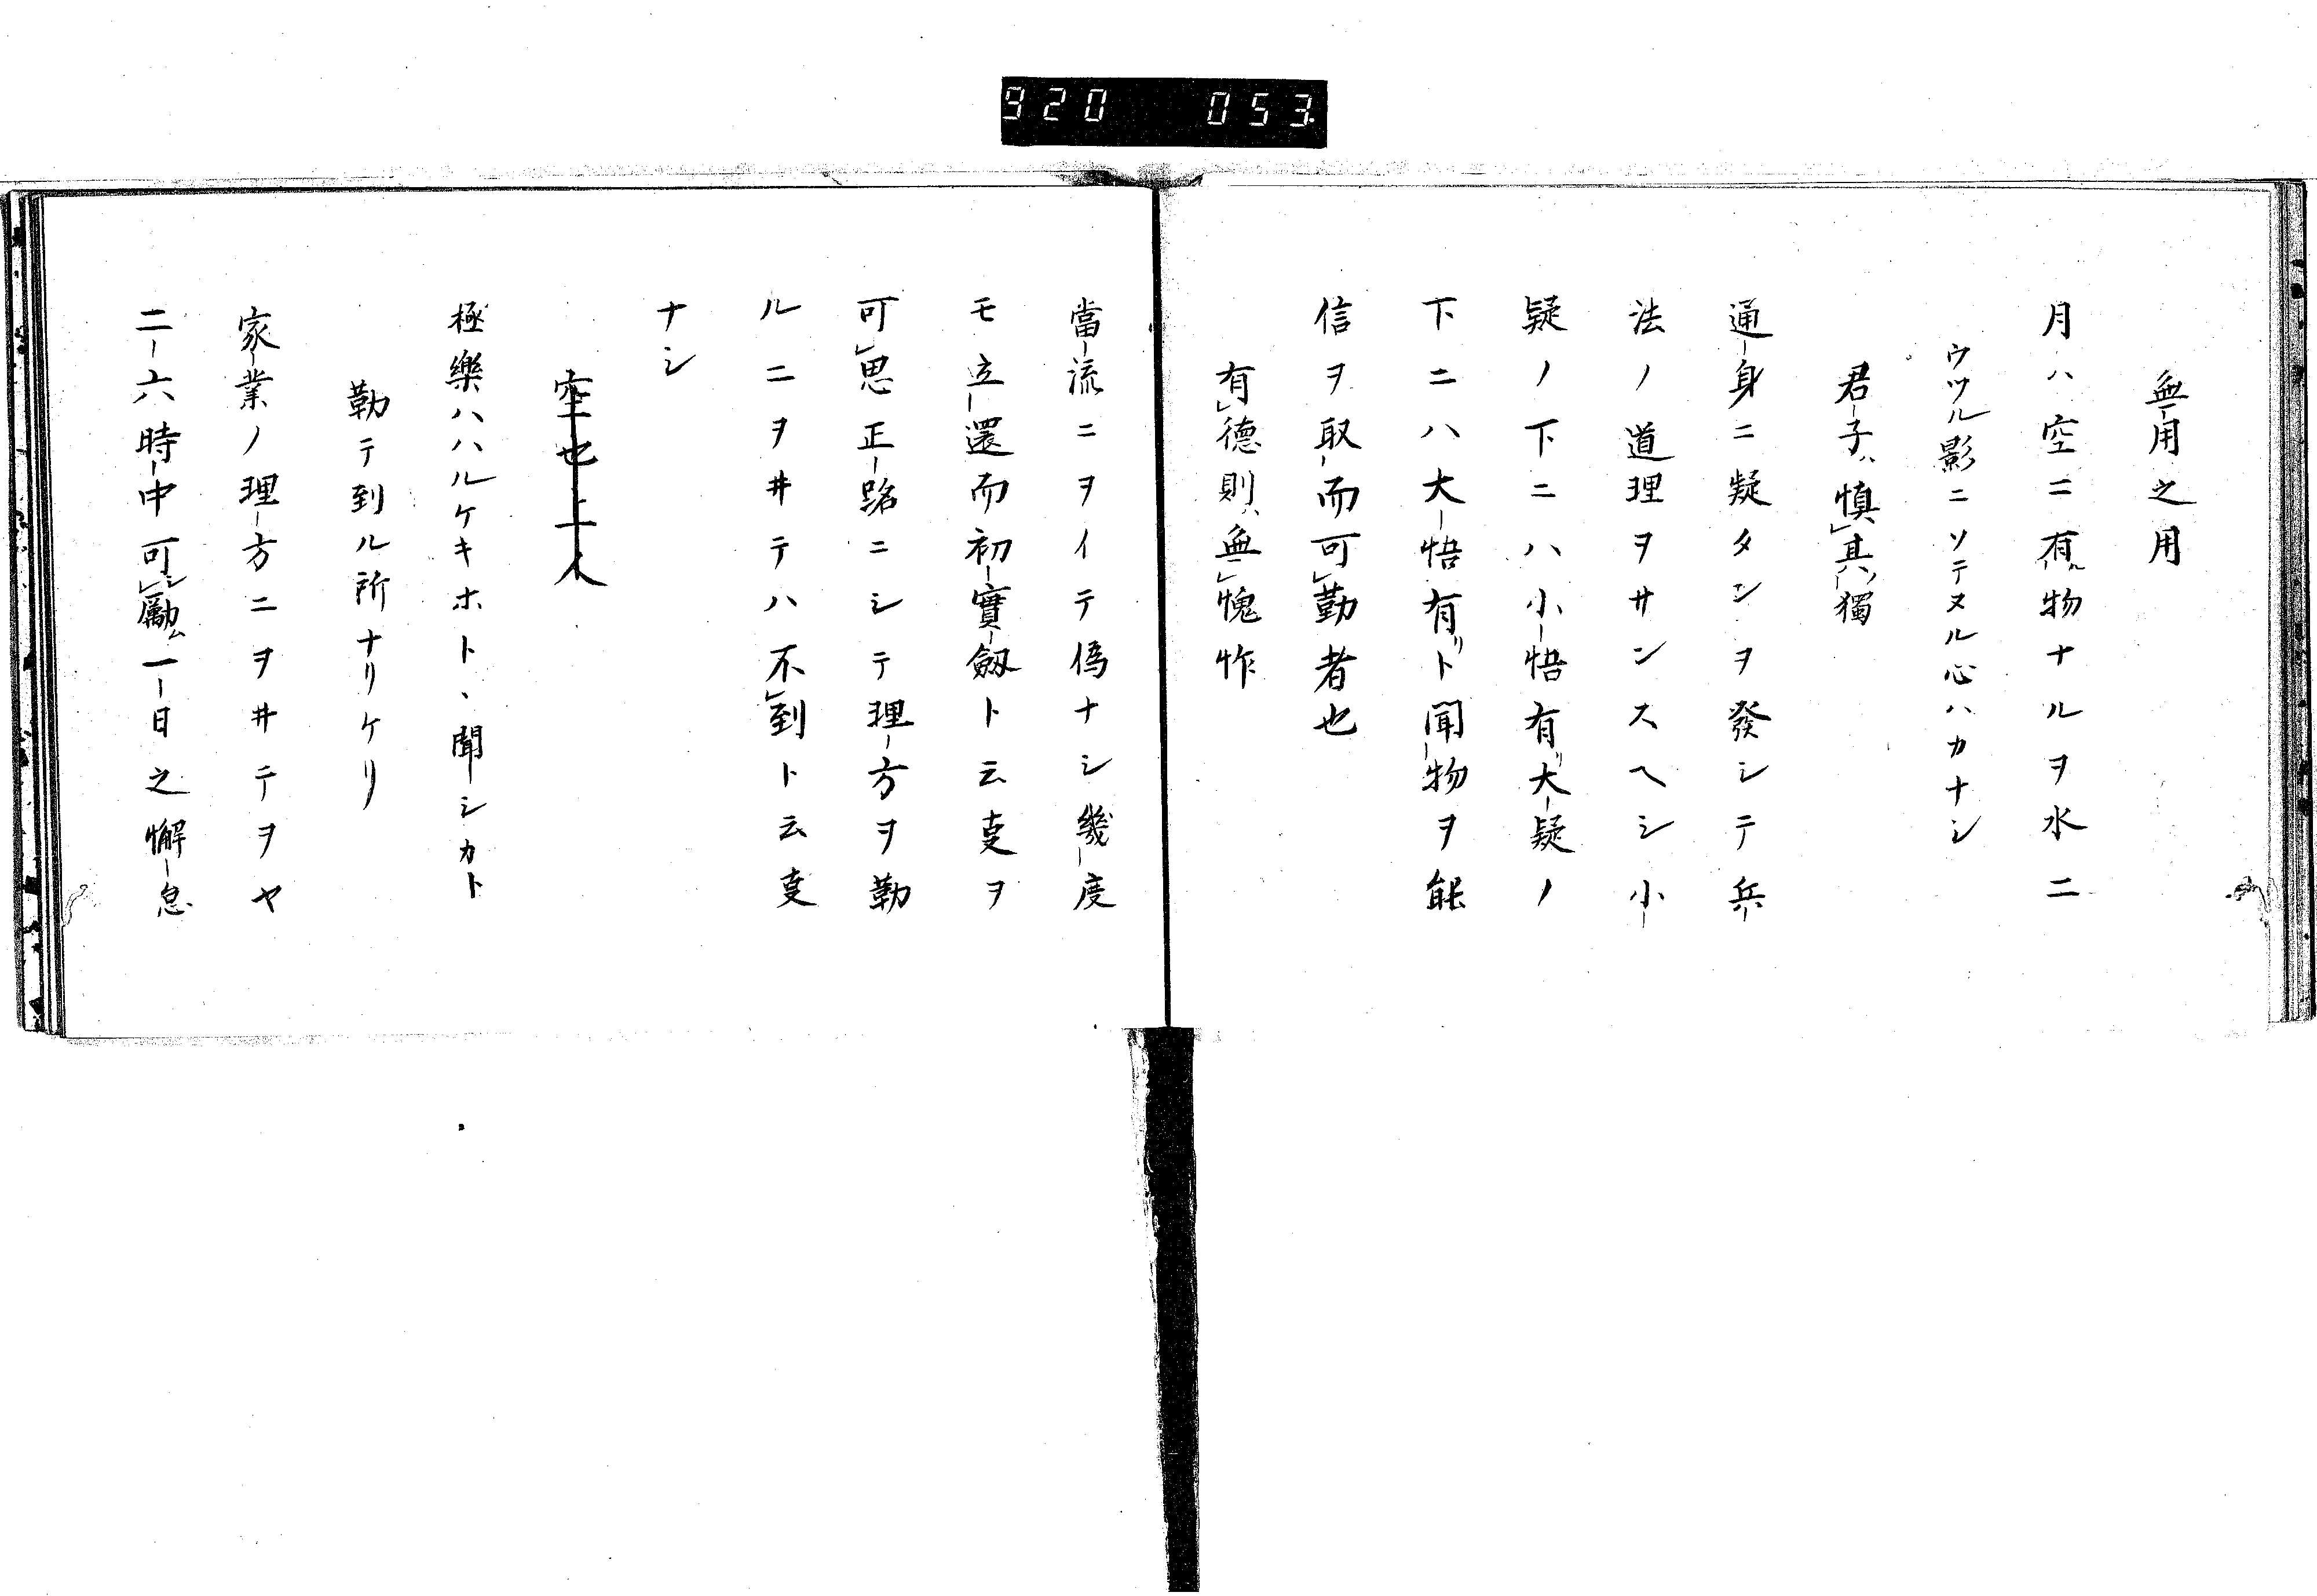 920 053
無用之用
月ハ空ニ有ル物ナルヲ水ニ
ウツル影ニソテヌル心ハカナシ
君子ハ慎其ノ獨
通身ニ疑タンヲ發シテ兵
法ノ道理ヲサンスヘシ小
疑ノ下ニハ小悟有リ大疑ノ
下ニハ大悟有リト聞物ヲ能
信ヲ取而可勤者也
有德則ハ無愧怍
當流ニヲイテ偽ナシ幾度
モ立還而初實劔ト云叓ヲ
可思正路ニシテ理方ヲ勤
ルニヲ井テハ不到ト云叓
ナシ
空也上人
極樂ハハルケキホトヽ聞シカト
勤テ到ル所ナリケリ
家業ノ理方ニヲ井テヲヤ
二六時中可シ勵ム一日之懈怠